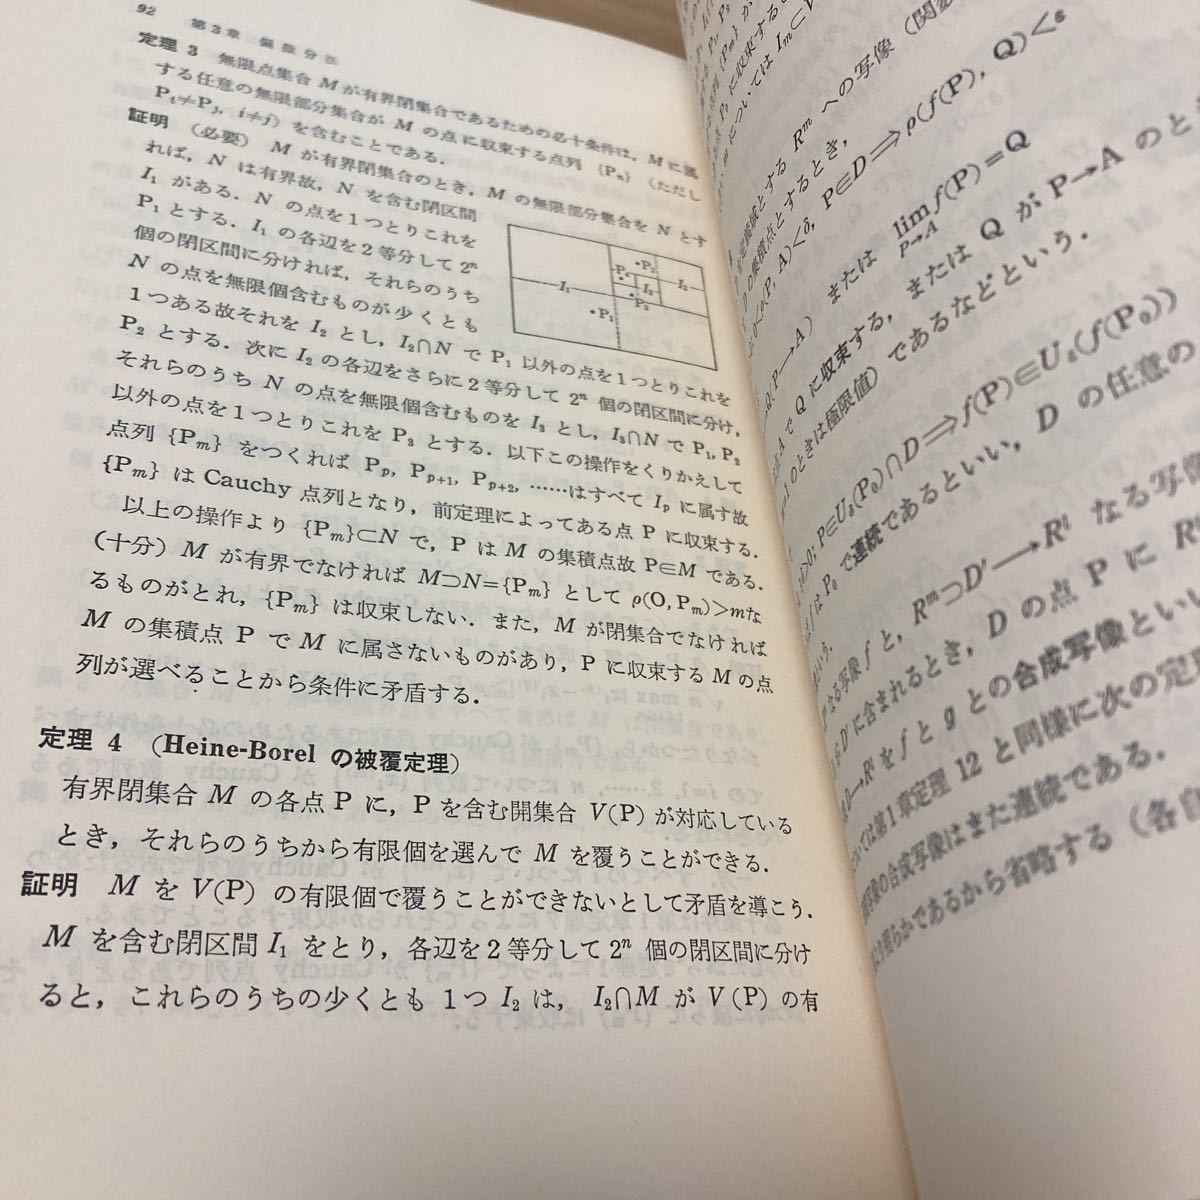 92 第3章 偏微分法
定理 3 無限点集合 M が有界閉集合であるための必十条件は，M に属
する任意の無限部分集合が M の点に収束する点列 {Pₙ} （ただし
Pᵢ≠Pⱼ, i≠j）を含むことである．
証明 （必要） M が有界閉集合のとき，M の無限部分集合を N とす
れば，N は有界故，N を含む閉区間
I₁ がある．N の点を1つとりこれを
P₁ とする．I₁ の各辺を2等分して 2ⁿ
個の閉区間に分ければ，それらのうち
N の点を無限個含むものが少くとも
1つある故それを I₂ とし，I₂∩N で P₁ 以外の点を1つとりこれを
P₂ とする．次に I₂ の各辺をさらに2等分して 2ⁿ 個の閉区間に分け，
それらのうち N の点を無限個含むものを I₃ とし，I₃∩N で P₁, P₂
以外の点を1つとりこれを P₃ とする．以下この操作をくりかえして
点列 {Pₘ} をつくれば Pₚ, Pₚ₊₁, Pₚ₊₂, ……はすべて Iₚ に属す故
{Pₘ} は Cauchy 点列となり，前定理によってある点 P に収束する．
以上の操作より {Pₘ}⊂N で，P は M の集積点故 P∈M である．
（十分） M が有界でなければ M⊃N={Pₘ} として ρ(O, Pₘ)>mな
るものがとれ，{Pₘ} は収束しない．また，M が閉集合でなければ
M の集積点 P で M に属さないものがあり，P に収束する M の点
列が選べることから条件に矛盾する．
定理 4 （Heine-Borel の被覆定理）
有界閉集合 M の各点 P に，P を含む開集合 V(P) が対応している
とき，それらのうちから有限個を選んで M を覆うことができる．
証明 M を V(P) の有限個で覆うことができないとして矛盾を導こう．
M を含む閉区間 I₁ をとり，各辺を2等分して 2ⁿ 個の閉区間に分け
ると，これらのうちの少くとも 1つ I₂ は，I₂∩M が V(P) の有
I₁
P₂
P₄
I₃
I₂
P₃
P₁
に収束すると
については Iₘ⊂V
とする Rᵐ への写像（関数
の集積点とするとき，
0<ρ(P, A)<δ, P∈D⟹ρ(f(P), Q)<ε
(P⟶A) または lim f(P)=Q
P→A
A で Q に収束する，または Q が P→A のと
のときは極限値）であるなどという．
P∈U_δ(P₀)∩D⟹f(P)∈U_ε(f(P₀))
f は P₀ で連続であるといい，D の任意の
なる写像 f と，Rᵐ⊃D′⟶Rˡ なる写像
が D′ に含まれるとき，D の点 P に Rˡ
D⟶Rˡ を f と g との合成写像といい
ついては第1章定理 12 と同様に次の定理
の合成写像はまた連続である．
明らかであるから省略する（各自